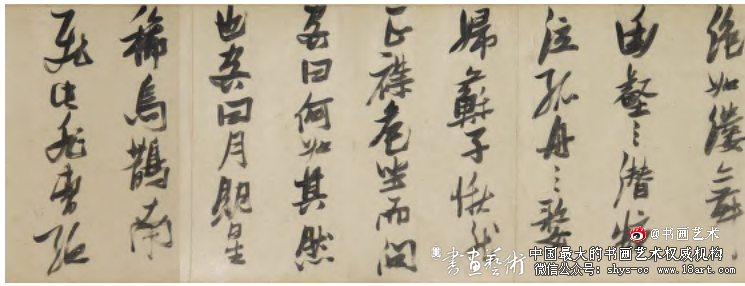 絕如縷舞
幽壑之潛蛟
泣孤舟之嫠
婦蘇子愀然
正襟危坐而問
客曰何為其然
也客曰月明星
稀烏鵲南
飛此非曹孟
@书画艺术
書畫藝術
中国最大的书画艺术权威机构
微信公众号: shys-cc www.18art.com